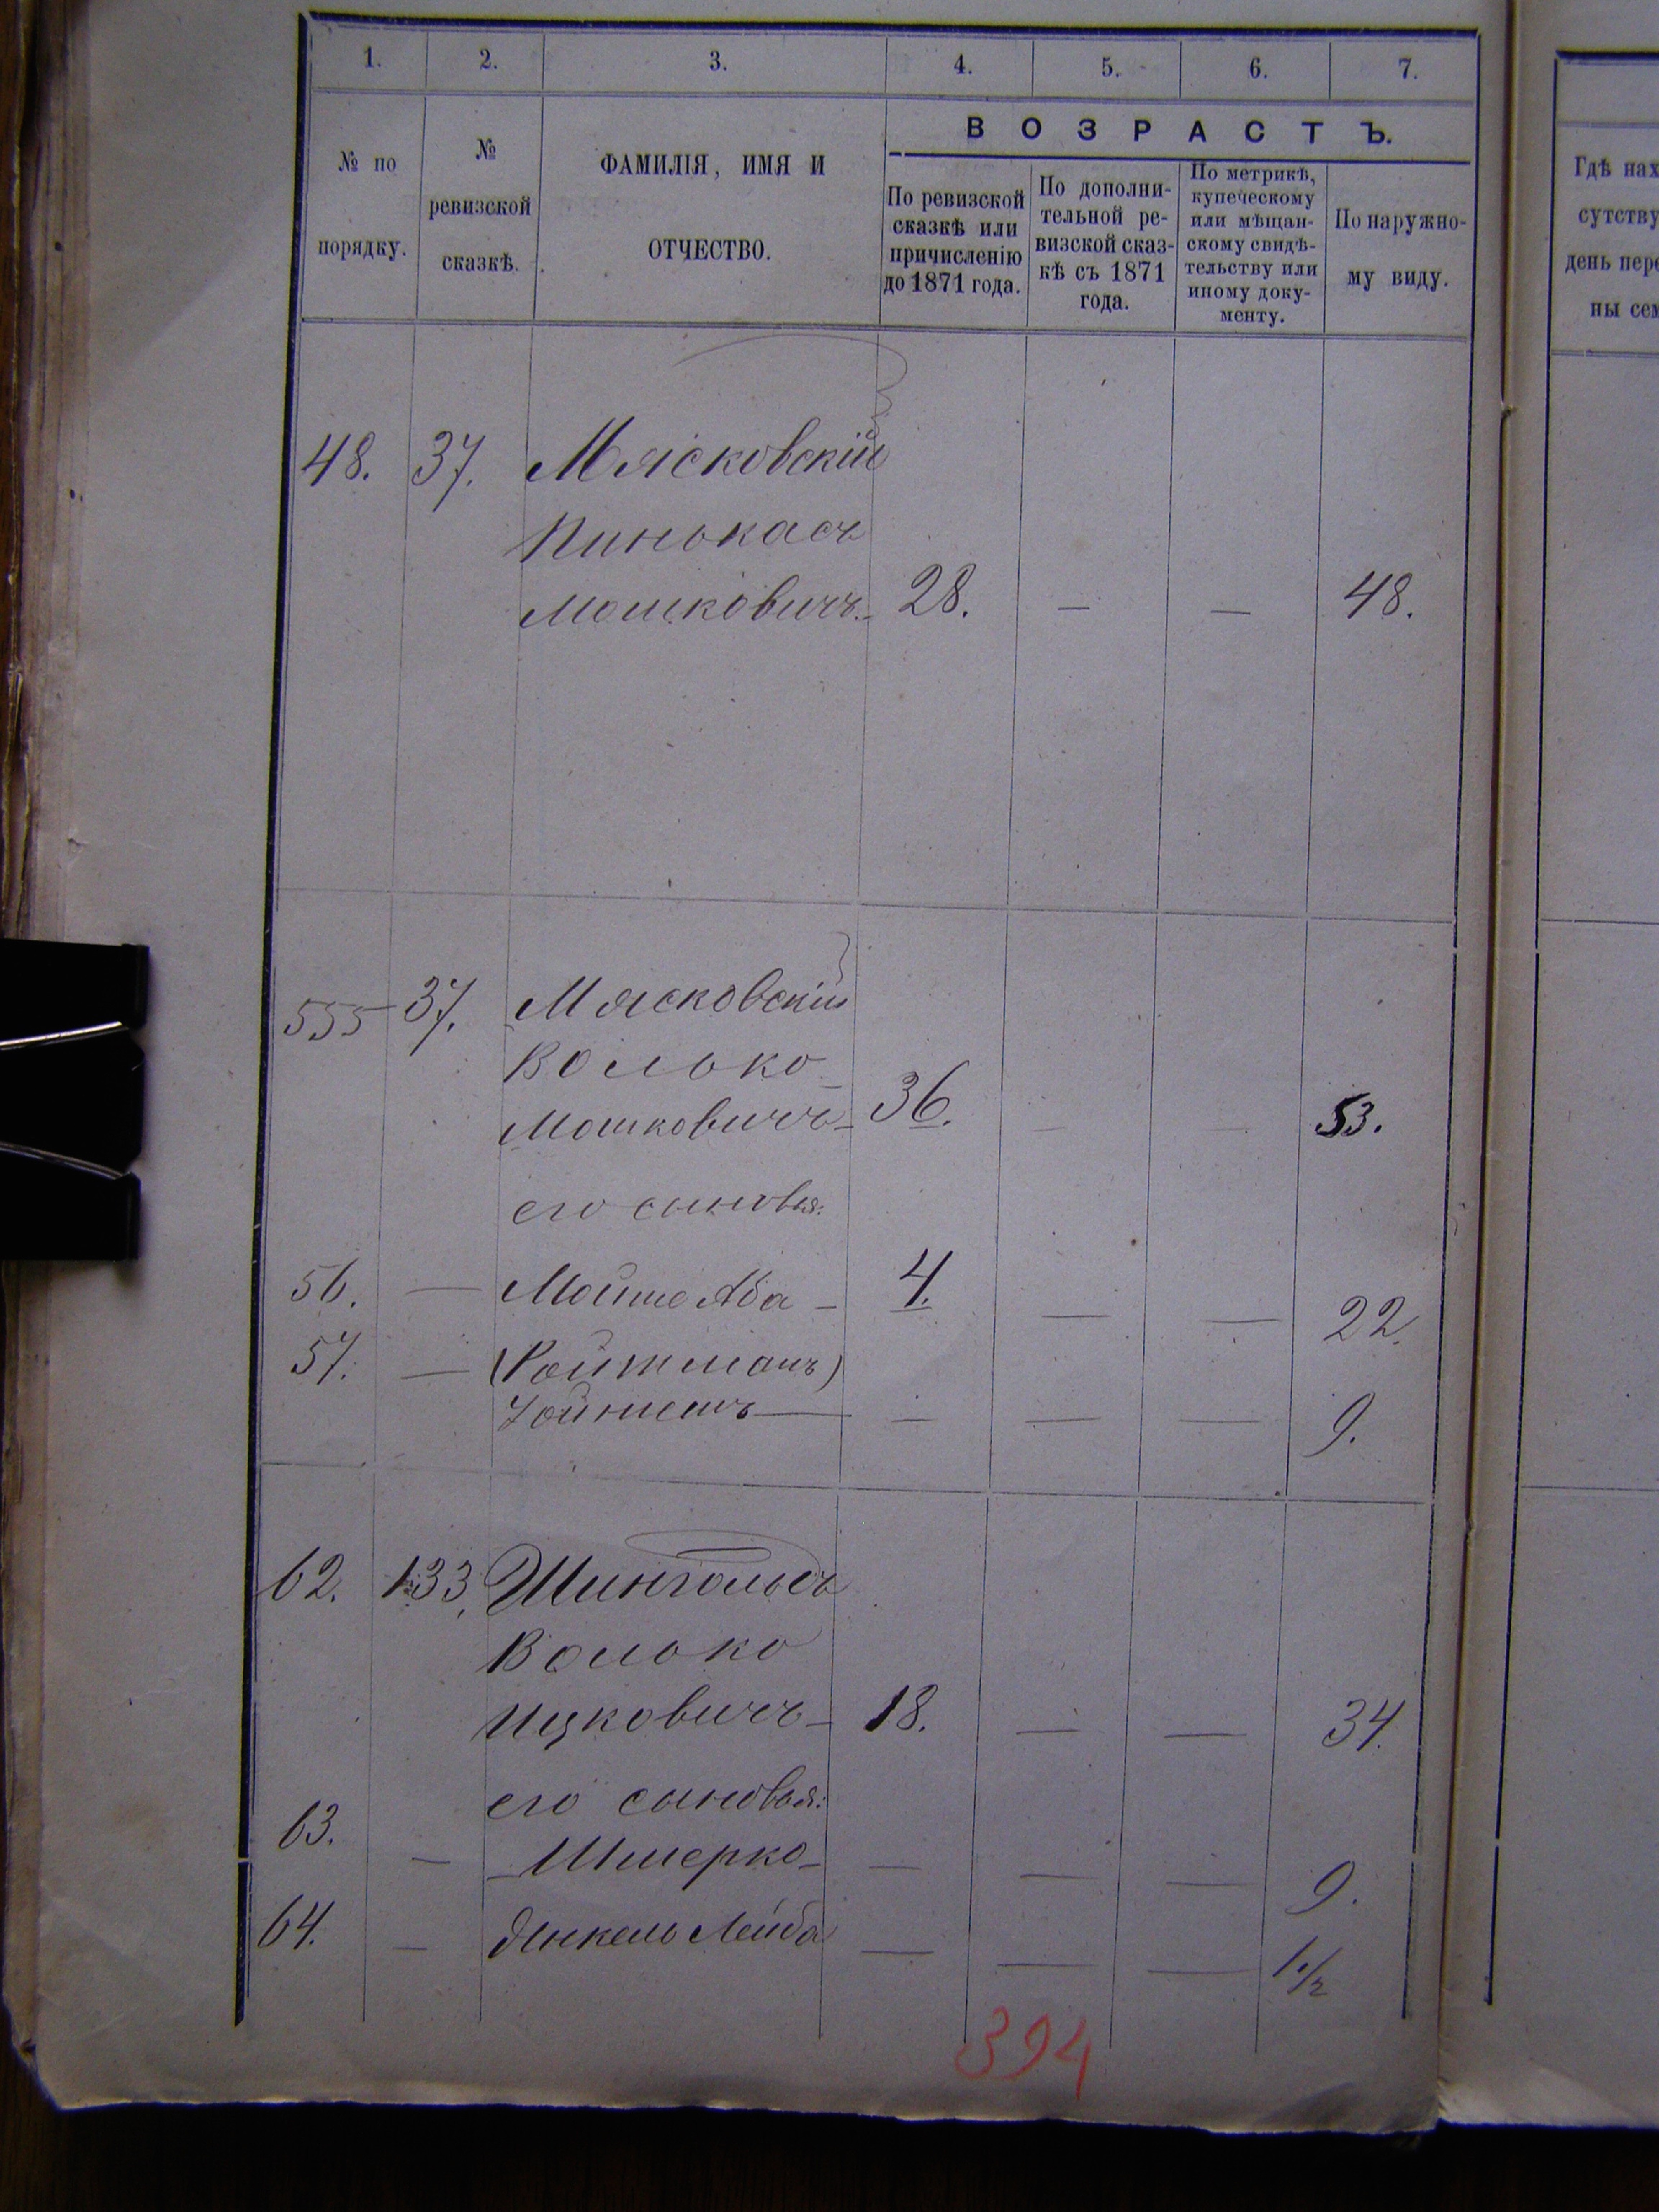 1. 2. 3. 4. 5. 6. 7.
№ по порядку.
№ ревизской сказкѣ.
ФАМИЛІЯ, ИМЯ И ОТЧЕСТВО.
ВОЗРАСТЪ.
По ревизской сказкѣ или причисленію до 1871 года.
По дополни-
тельной ре-
визской сказ-
кѣ съ 1871
года.
По метрикѣ,
купеческому
или мѣщан-
скому свидѣ-
тельству или
иному доку-
менту.
По наружно-
му виду.
Гдѣ нах
сутству
день пере
ны сем
48. 37. Мясковскій
Пинькасъ
Мошковичъ. 28. — — 48.
555 37. Мясковскій
Волько
Мошковичъ 36. — — 53.
его сыновья:
56. — Мойше Аба — 4. — — 22.
57. — (Ройтманъ)
— — — 9.
62. 133. Шингольдъ
Волько
Ицковичъ — 18. — — 34.
его сыновья:
63. — Шмерко — — — — 9.
64. — Янкель Лейба — — — 1 1/2
394